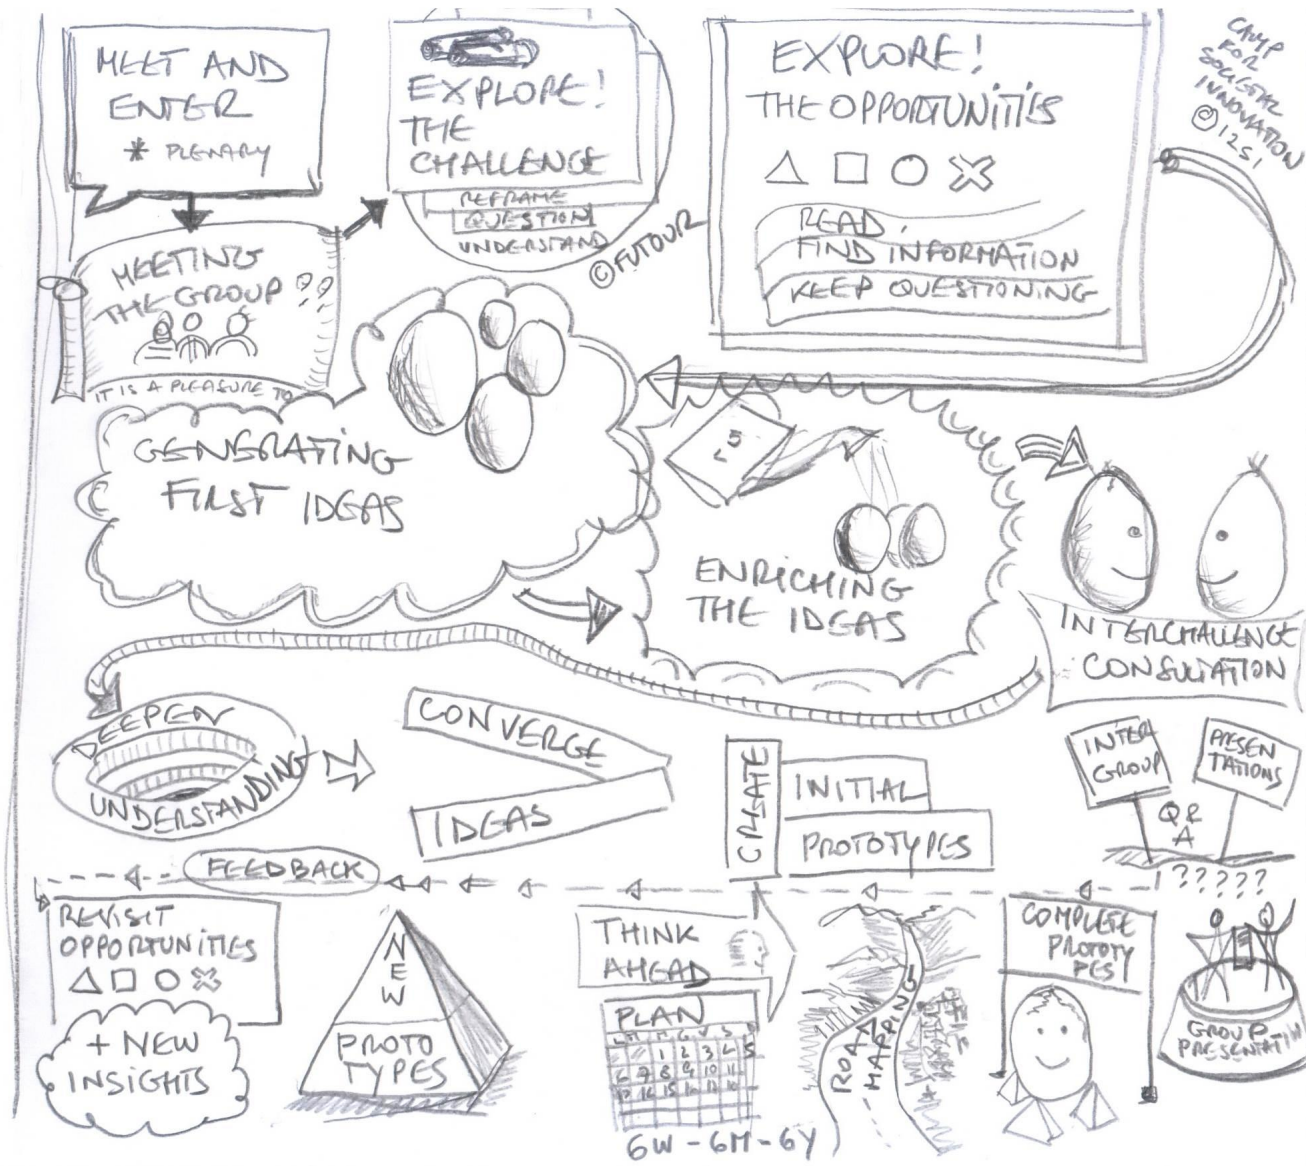 MEET AND
ENTER
* PLENARY
MEETING
THE GROUP
IT IS A PLEASURE TO
EXPLORE!
THE
CHALLENGE
REFRAME
QUESTION
UNDERSTAND
© FUTOUR
EXPLORE!
THE OPPORTUNITIES
READ,
FIND INFORMATION
KEEP QUESTIONING
CAMP
FOR
SOCIETAL
INNOVATION
© 1251
GENERATING
FIRST IDEAS
ENRICHING
THE IDEAS
INTERCHALLENGE
CONSULTATION
DEEPEN
UNDERSTANDING
CONVERGE
IDEAS
CREATE
INITIAL
PROTOTYPES
INTER
GROUP
PRESEN
TATIONS
Q &
A
?????
FEEDBACK
REVISIT
OPPORTUNITIES
+ NEW
INSIGHTS
NEW
PROTO
TYPES
THINK
AHEAD
PLAN
6W - 6M - 6Y
ROAD
MAPPING
COMPLETE
PROTOTY
PES
GROUP